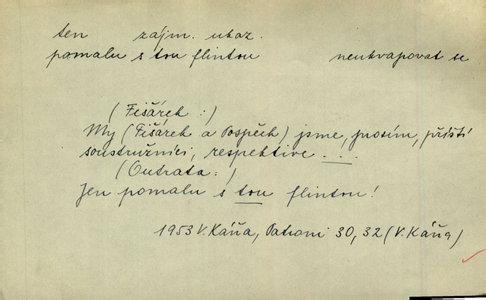 ten zájm. ukaz.
pomalu s tou flintou neukvapovat se
(Fišárek :)
My (Fišárek a Pospěch) jsme, prosím, příští
soustružníci, respektive . . .
(Outrata :)
Jen pomalu s tou flintou!
1953 V. Káňa, Patroni 30, 32 (V. Káňa)